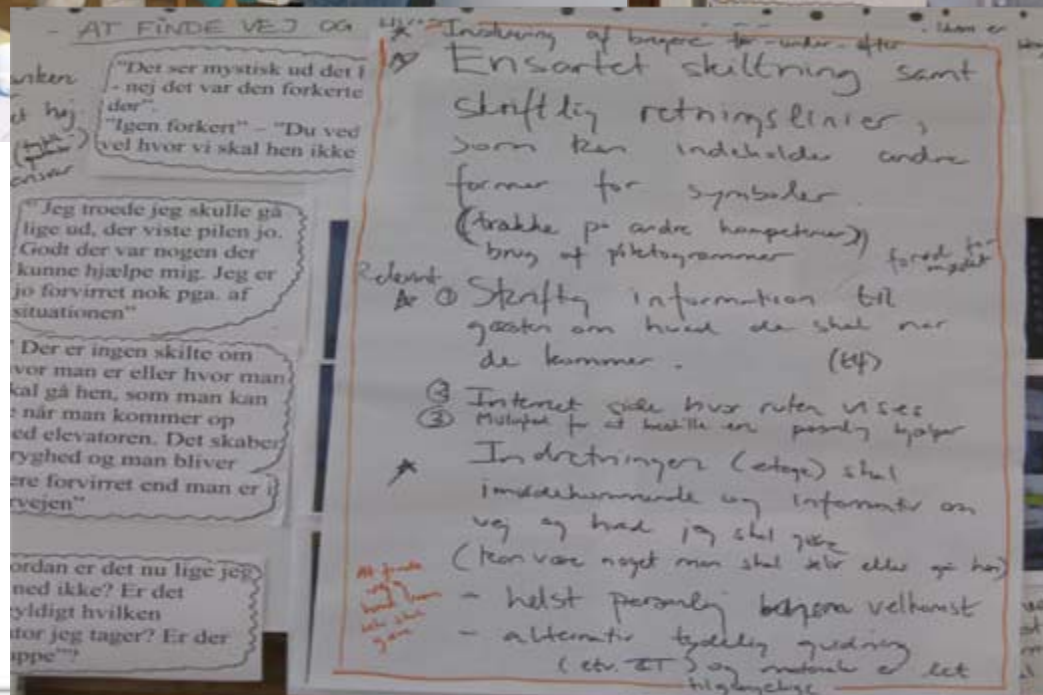 - AT FINDE VEJ OG
"Det ser mystisk ud det l
- nej det var den forkerte
dør".
"Igen forkert" – "Du ved
vel hvor vi skal hen ikke
"Jeg troede jeg skulle gå
lige ud, der viste pilen jo.
Godt der var nogen der
kunne hjælpe mig. Jeg er
jo forvirret nok pga. af
situationen"
Der er ingen skilte om
vor man er eller hvor man
kal gå hen, som man kan
når man kommer op
ed elevatoren. Det skaber
ryghed og man bliver
ere forvirret end man er i
vejen"
ordan er det nu lige jeg
ned ikke? Er det
yldigt hvilken
tor jeg tager? Er der
ppe"?
af brugere før - under - efter
Ensartet skiltning samt
skriftlig retningslinier,
som kan indeholde andre
former for symboler
(trække på andre kompetencer)
brug af piktogrammer
Relevant
① Skriftlig information til
gæsten om hvad de skal når
de kommer.
② Internet side hvor ruten vises
③ Mulighed for at bestille en personlig hjælper
Indretningen (etage) skal
imødekommende og informativ om
vej og hvad jeg skal gøre
(kan være noget man skal selv eller gå hen)
- helst personlig velkomst
- alternativ tydelig guidning
(evt. IT) og er let
tilgængelige
At finde
vej